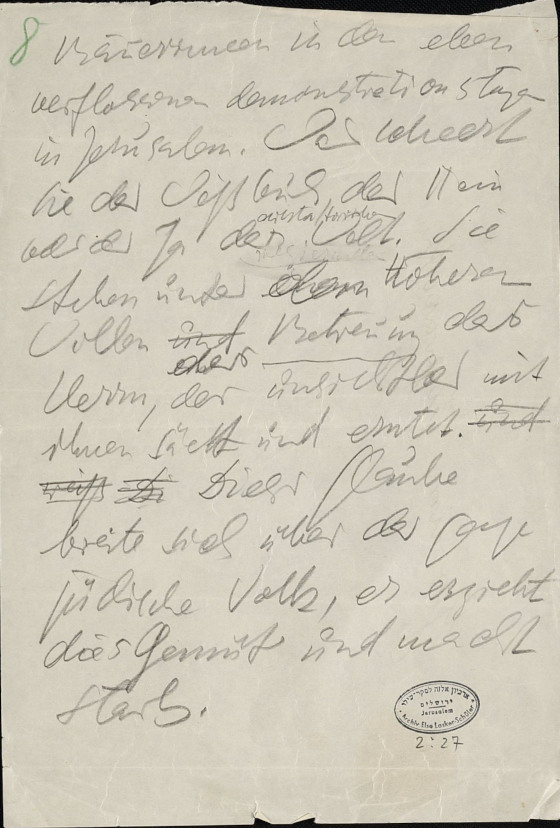 8 Bäuerinnen in den eben
verflossenen demonstrationstagen
in Jerusalem.
sie der das Nein
oder das Ja der Welt. Sie
stehen unter dem Höheren
Wollen und Betreuung des
der
Herrn, der unsichtbar mit
ihnen säet und erntet. und
Dieser Glaube
breite sich über das ganze
jüdische Volk, er erzieht
das Gemüt und macht
stark.
ארכיון אלזה לסקר-שילר
ירושלים
Jerusalem
Archiv Else Lasker-Schüler
2:27